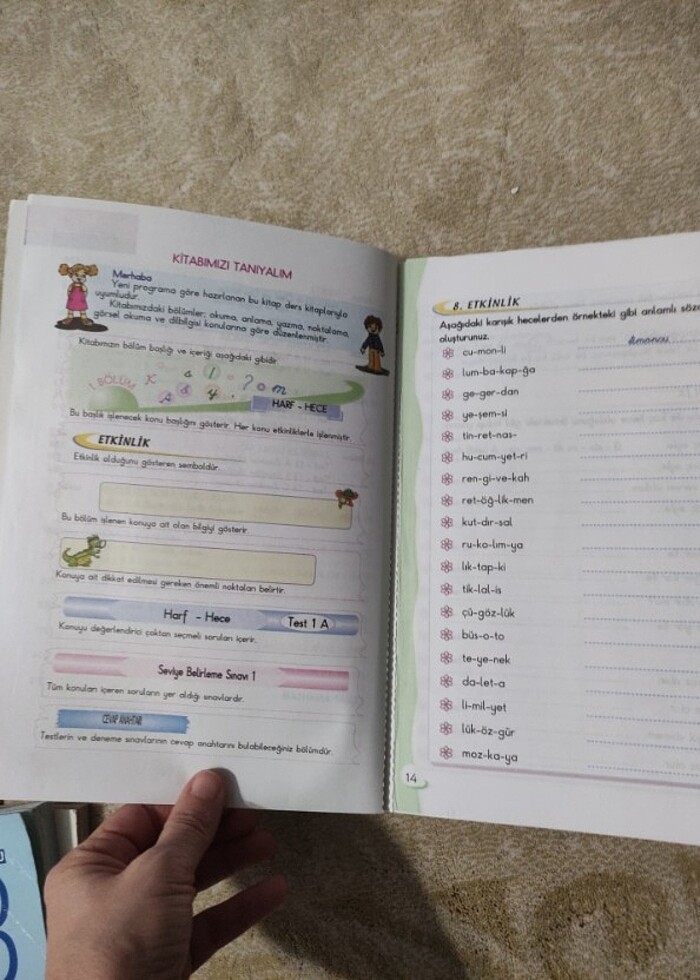 KİTABIMIZI TANIYALIM
Merhaba
Yeni programa göre hazırlanan bu kitap ders kitaplarıyla
uyumludur.
Kitabımızdaki bölümler; okuma, anlama, yazma, noktalama,
görsel okuma ve dilbilgisi konularına göre düzenlenmiştir.
Kitabımızın bölüm başlığı ve içeriği aşağıdaki gibidir.
1. BÖLÜM
HARF - HECE
Bu başlık işlenecek konu başlığını gösterir. Her konu etkinliklerle işlenmiştir.
ETKİNLİK
Etkinlik olduğunu gösteren semboldür.
Bu bölüm işlenen konuya ait olan bilgiyi gösterir.
Konuya ait dikkat edilmesi gereken önemli noktaları belirtir.
Harf - Hece Test 1 A
Konuyu değerlendirici çoktan seçmeli soruları içerir.
Seviye Belirleme Sınavı 1
Tüm konuları içeren soruların yer aldığı sınavlardır.
CEVAP ANAHTARI
Testlerin ve deneme sınavlarının cevap anahtarını bulabileceğiniz bölümdür.
8. ETKİNLİK
Aşağıdaki karışık hecelerden örnekteki gibi anlamlı söz
oluşturunuz.
cu-mon-li
lum-ba-kap-ğa
ge-ger-dan
ye-şem-si
tin-ret-nas-
hu-cum-yet-ri
ren-gi-ve-kah
ret-öğ-lik-men
kut-dır-sal
ru-ko-lım-ya
lık-tap-ki
tik-lal-is
çü-göz-lük
büs-o-to
te-ye-nek
da-let-a
li-mil-yet
lük-öz-gür
moz-ka-ya
14